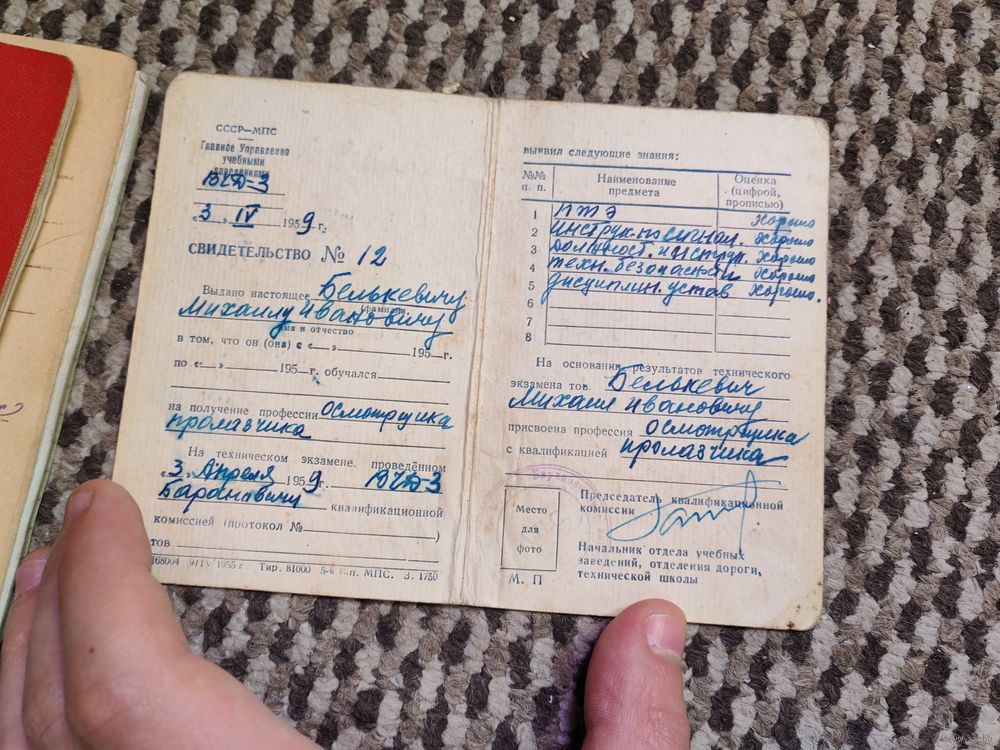 СССР—МПС
Главное Управление
учебными
заведениями
ВЧД-3
«3» IV 1959 г.
СВИДЕТЕЛЬСТВО № 12
Выдано настоящее Белькевичу
фамилия
Михаилу Ивановичу
имя и отчество
в том, что он (она) с «—» 195—г.
по «—» 195—г. обучался
на получение профессии осмотрщика
пролазчика
На техническом экзамене, проведённом
«3» Апреля 1959 г. ВЧД-3
Барановичи квалификационной
комиссией (протокол № )
тов
168004 9/IV 1955 г. Тир. 81000 5-я тип. МПС. З. 1750
выявил следующие знания:
№№ п. п. Наименование предмета Оценка (цифрой, прописью)
1 ПТЭ хорошо
2 инструк. по сигнал. хорошо
3 должност. инструк. хорошо
4 техн. безопасности хорошо
5 дисциплин. устав хорошо.
6
7
8
На основании результатов технического
экзамена тов. Белькевич
Михаил Ивановичу
присвоена профессия осмотрщика
с квалификацией пролазчика
Место
для
фото
М. П
Председатель квалификационной
комиссии
Начальник отдела учебных
заведений, отделения дороги,
технической школы